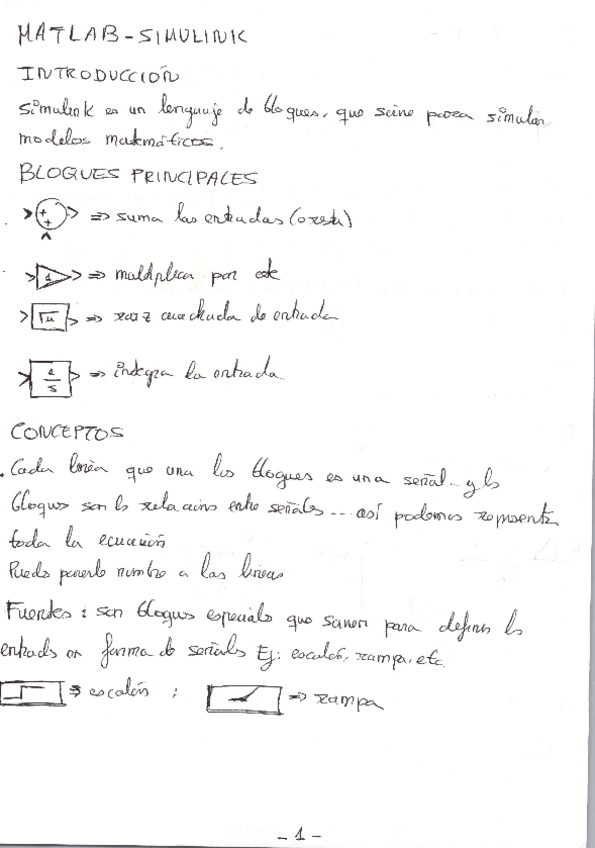 MATLAB-SIMULINK
INTRODUCCIÓN
Simulink es un lenguaje de bloques, que sirve para simular
modelos matemáticos.
BLOQUES PRINCIPALES
+ + => suma las entradas (o resta)
1 => multiplica por cte
√u => raiz cuadrada de entrada
1/s => integra la entrada
CONCEPTOS
. Cada línea que una los bloques es una señal... y los
bloques son las relaciones entre señales... así podemos representar
toda la ecuación
Puedo ponerle nombre a las líneas
Fuentes: son bloques especiales que sirven para definir las
entradas en forma de señales Ej: escalón, rampa, etc.
=> escalón ; => rampa
- 1 -